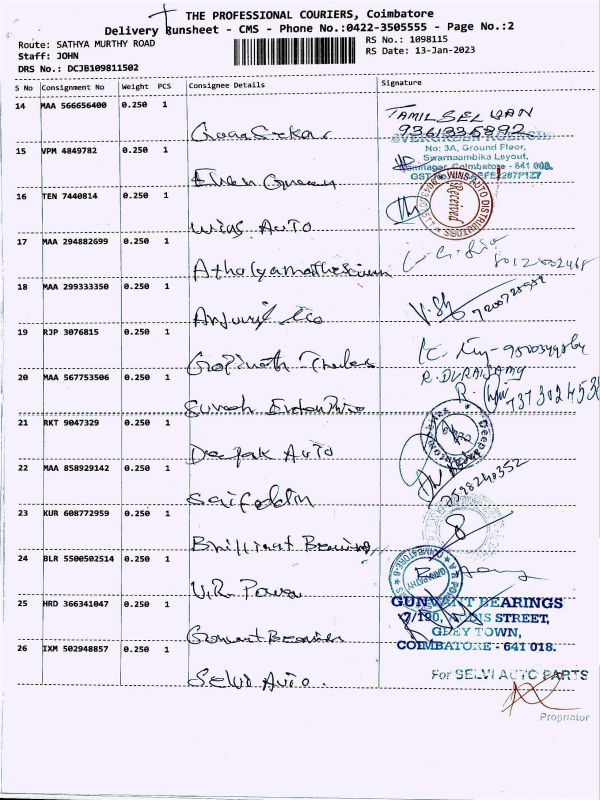 THE PROFESSIONAL COURIERS, Coimbatore
Delivery Runsheet - CMS - Phone No.:0422-3505555 - Page No.:2
Route: SATHYA MURTHY ROAD
Staff: JOHN
DRS No.: DCJB109811502
RS No.: 1098115
RS Date: 13-Jan-2023
S No Consignment No Weight PCS Consignee Details Signature
14 MAA 566656400 0.250 1
TAMILSELVAN
9361335892
EVERGREEN AGENCIE
No: 3A, Ground Floor,
Swarnaambika Layout,
Coimbatore - 641 009.
15 VPM 4849782 0.250 1
Ever Green
16 TEN 7440814 0.250 1
Wins Auto
WINS AUTO DISTRIBUTORS
Received
17 MAA 294882699 0.250 1
18 MAA 299333350 0.250 1
V.
19 RJP 3076815 0.250 1
Gopinath
R. DURAISAMY
20 MAA 567753506 0.250 1
Suresh
21 RKT 9047329 0.250 1
Deepak Auto
22 MAA 858929142 0.250 1
Saifoddin
9598240352
23 KUR 608772959 0.250 1
Brilliant Bearing
24 BLR 5500502514 0.250 1
V.R. Power
COIMBATORE-6
25 HRD 366341047 0.250 1
Gunvant Bearing
GUNVANT BEARINGS
STREET,
GREY TOWN,
COIMBATORE - 641 018.
26 IXM 502948857 0.250 1
Selvi Auto.
For SELVI AUTO PARTS
Proprietor